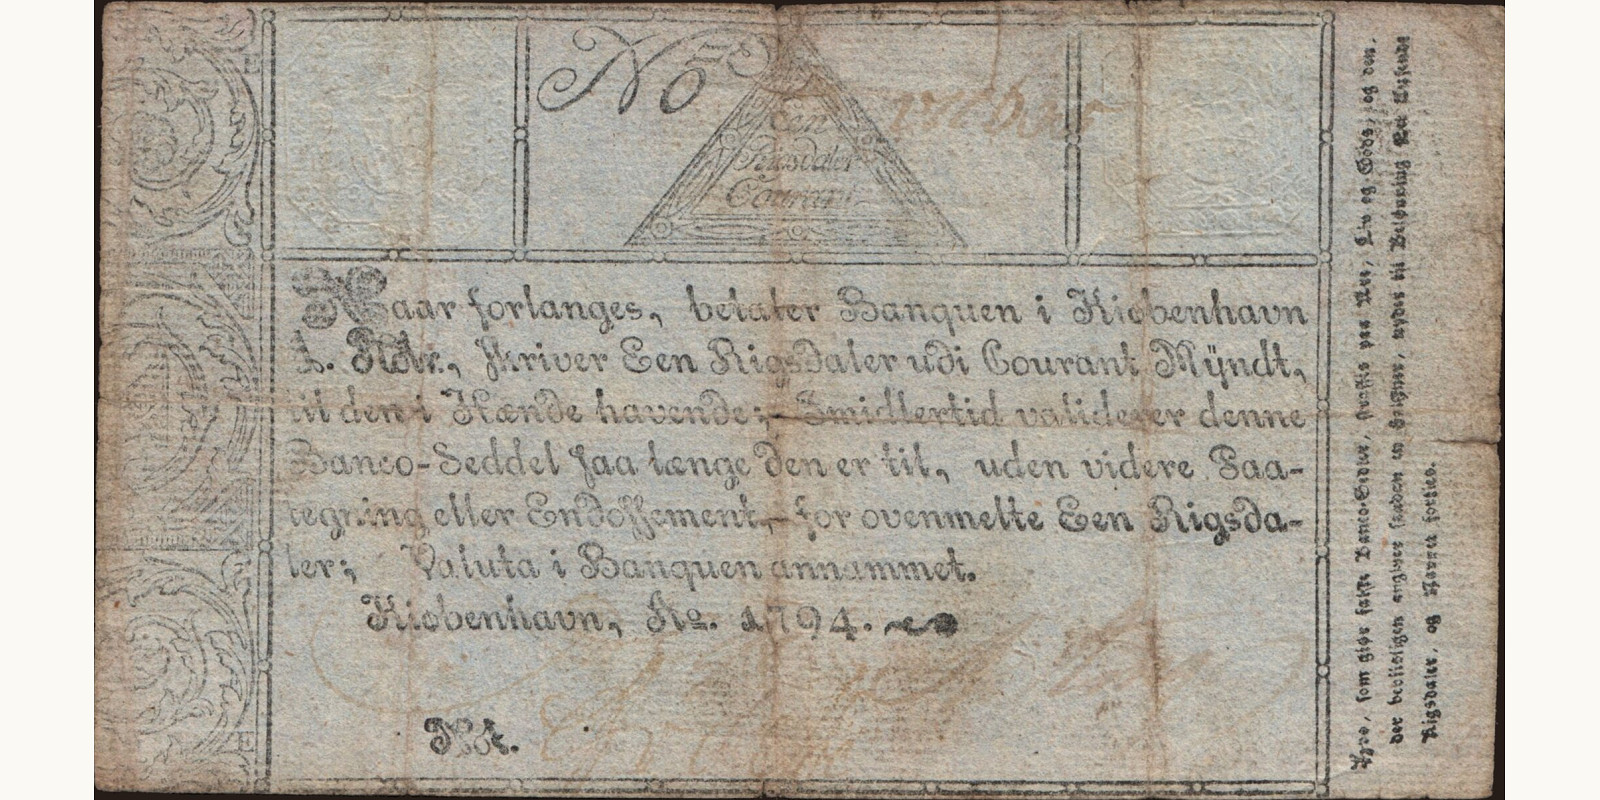 No
Een
Rigsdaler
Courant
Naar forlanges, betaler Banquen i Kiøbenhavn
skriver Een Rigsdaler udi Courant Mÿndt,
til den i Hænde havende; – Imidlertid validerer denne
Banco-Seddel saa længe den er til, uden videre Paa-
tegning eller Endossement, – for ovenmelte Een Rigsda-
ler; Valuta i Banquen annammet.
Kiøbenhavn, Ao. 1794.
Not.
som giør falske Banco-Sedler, straffes paa Ære, Liv og Gods; og den,
der beviisligen angiver saadan en Forfalsker, nyder til Belønning Et Tusinde
Rigsdaler, og Navnet forties.